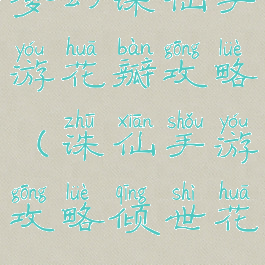 梦幻诛仙手
yóu huā bàn gōng lüè
游花瓣攻略
zhū xiān shǒu yóu
（诛仙手游
gōng lüè qīng shì huā
攻略倾世花